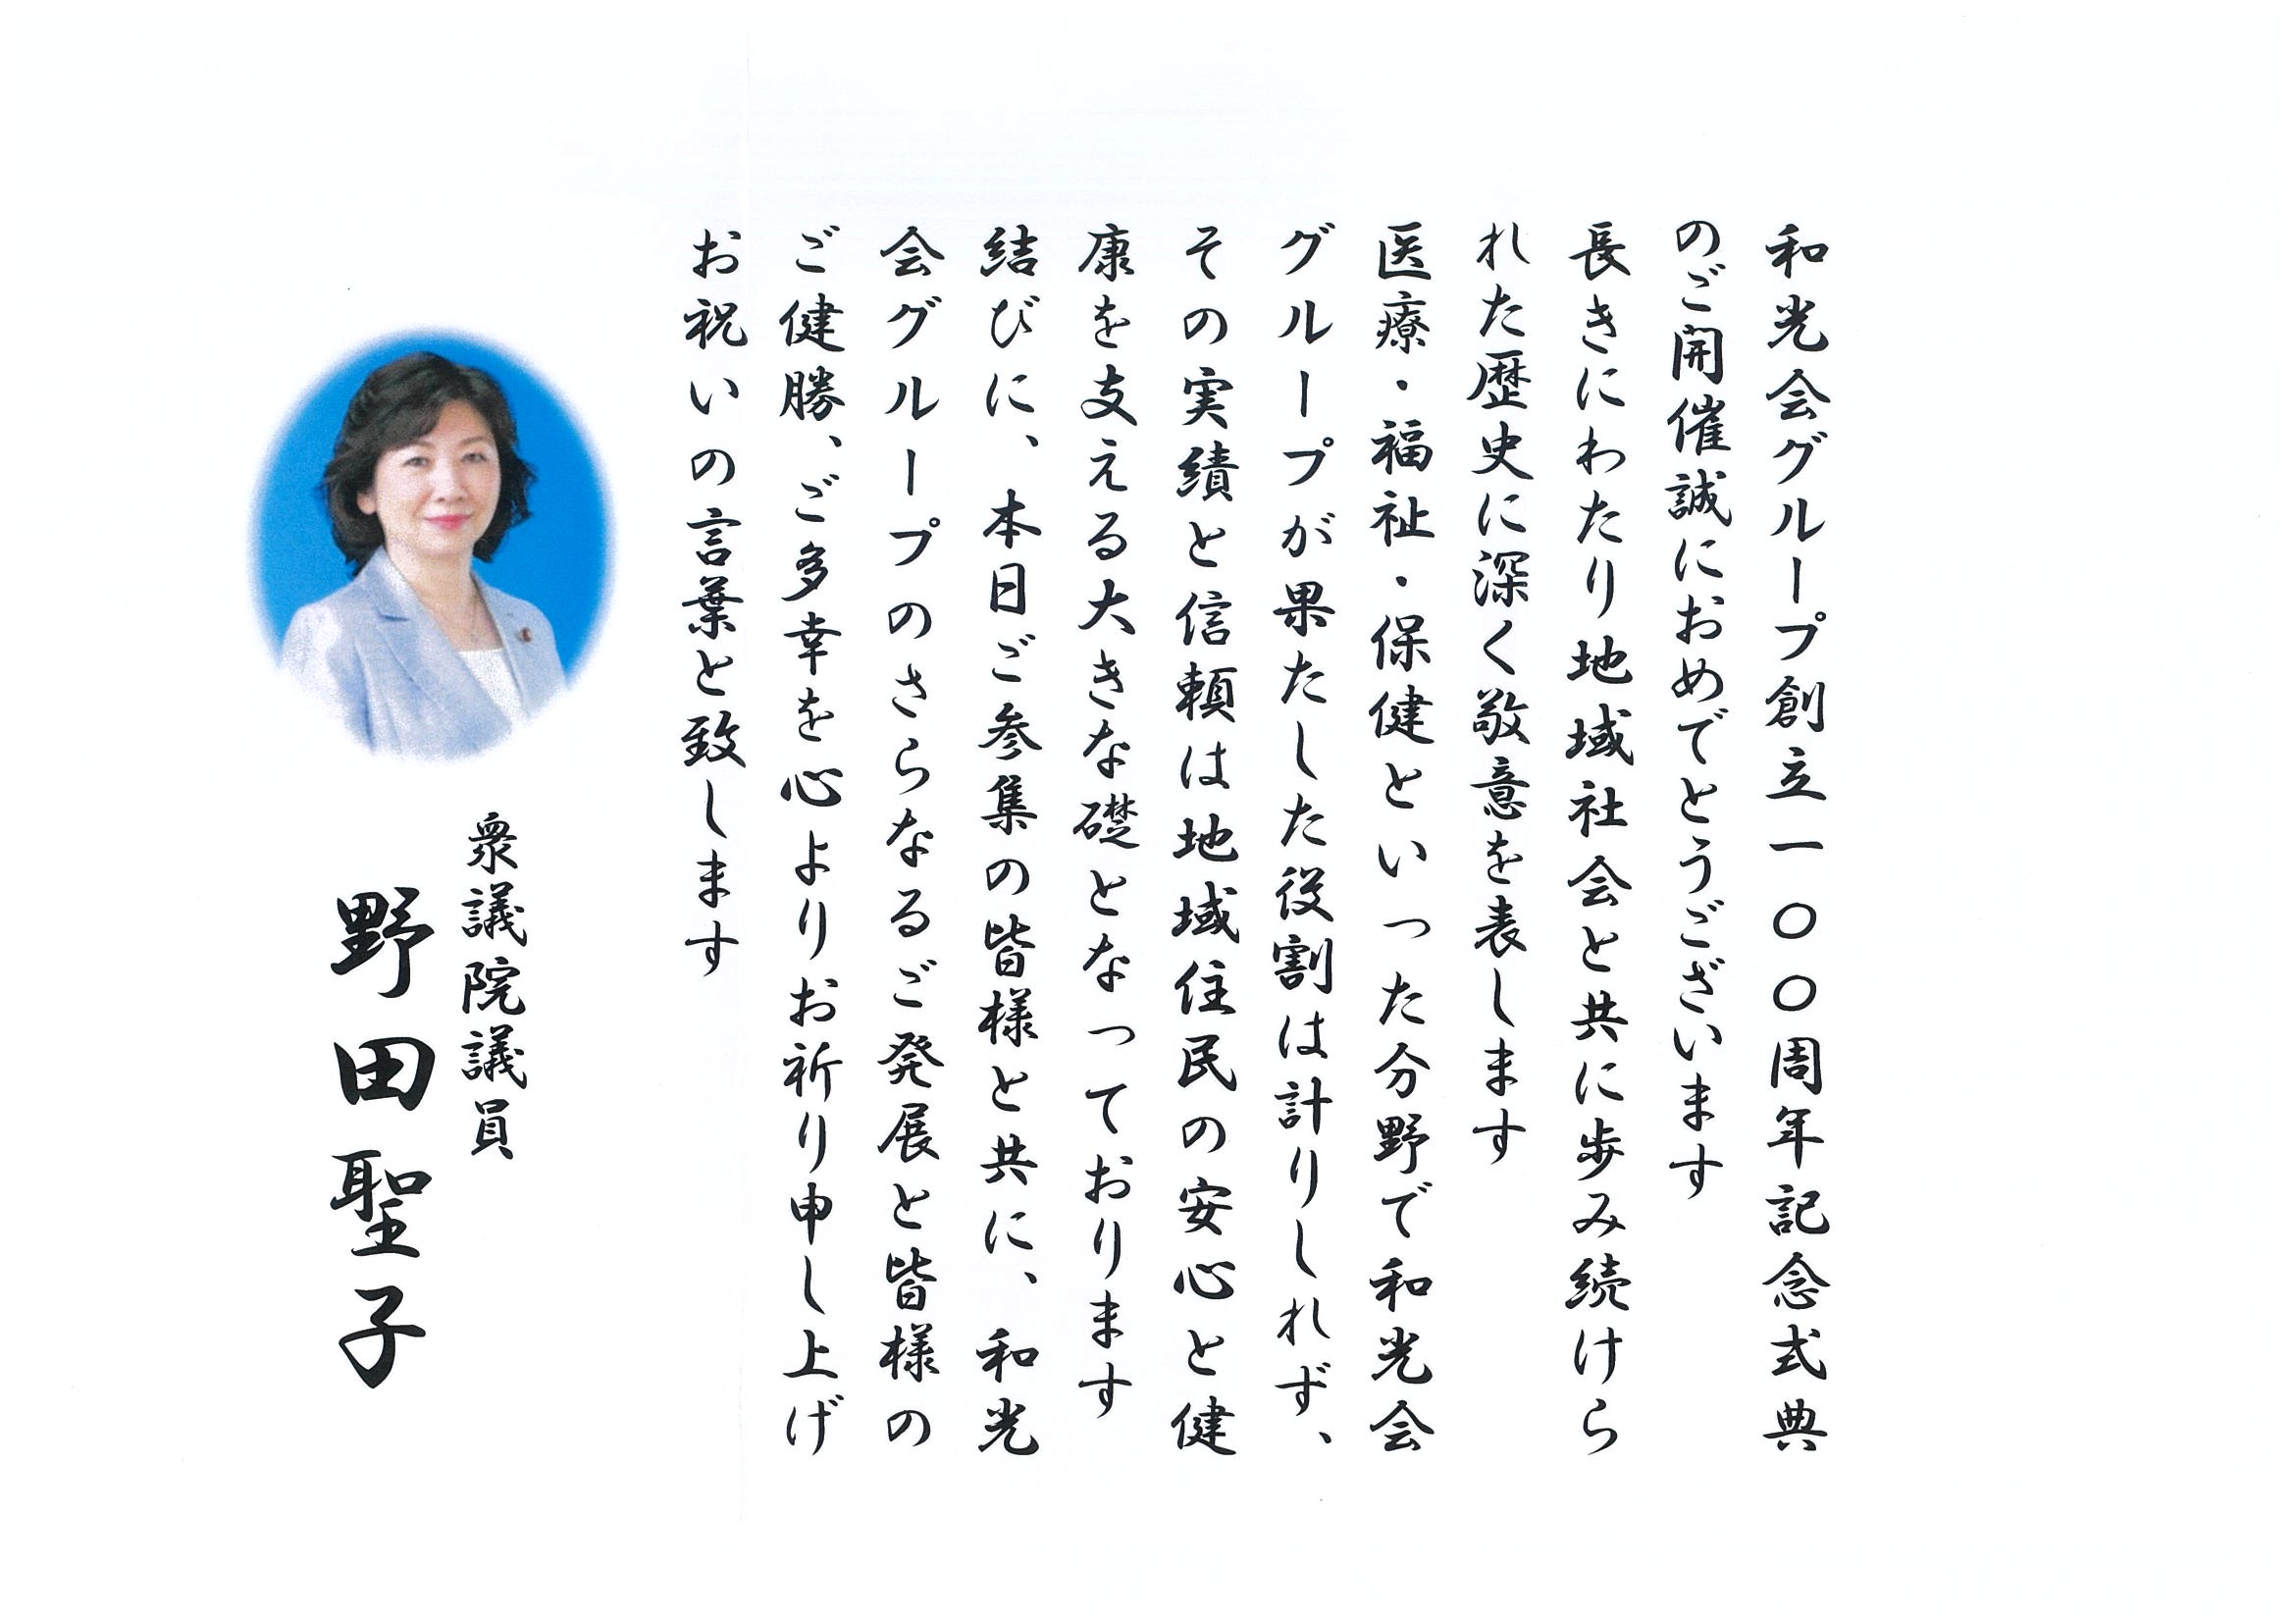 和光会グループ創立一〇〇周年記念式典
のご開催誠におめでとうございます
長きにわたり地域社会と共に歩み続けら
れた歴史に深く敬意を表します
医療・福祉・保健といった分野で和光会
グループが果たした役割は計りしれず、
その実績と信頼は地域住民の安心と健
康を支える大きな礎となっております
結びに、本日ご参集の皆様と共に、和光
会グループのさらなるご発展と皆様の
ご健勝、ご多幸を心よりお祈り申し上げ
お祝いの言葉と致します
衆議院議員
野田聖子